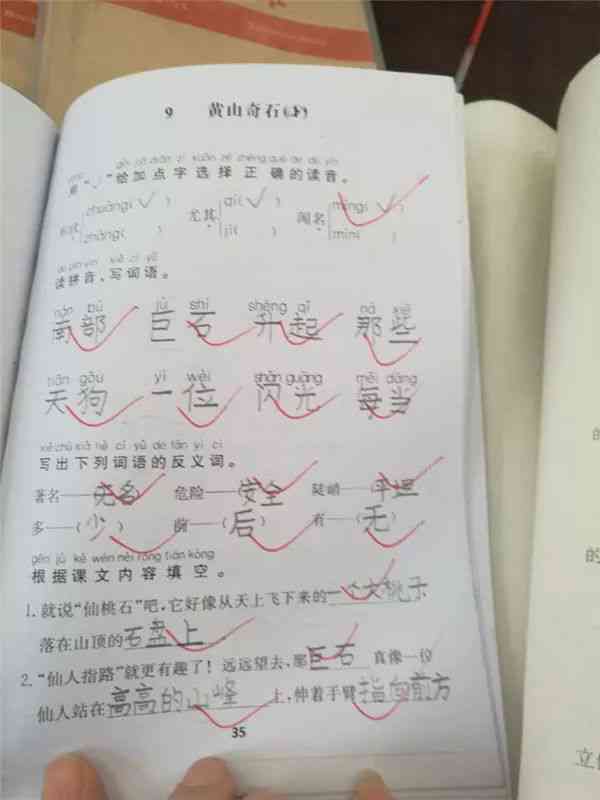 9 黄山奇石(下)
用“√”给加点字选择正确的读音。
形状 zhuàng( √ ) 尤其 qí( √ ) 闻名 míng( √ )
zhàng( ) jī( ) mín( )
dú pīn yīn xiě cí yǔ
读拼音、写词语。
nán bù jù shí shēng qǐ nà xiē
南部 巨石 升起 那些
tiān gǒu yí wèi shǎn guāng měi dāng
天狗 一位 闪光 每当
xiě chū xià liè cí yǔ de fǎn yì cí
写出下列词语的反义词。
著名——无名 危险——(安全 陡峭——平坦
多——(少) 前——(后) 有——(无)
gēn jù kè wén nèi róng tián kòng
根据课文内容填空。
1. 就说“仙桃石”吧,它好像从天上飞下来的一个大桃子
落在山顶的石盘上。
2. “仙人指路”就更有趣了!远远望去,那巨石真像一位
仙人站在高高的山峰上,伸着手臂指向前方
35